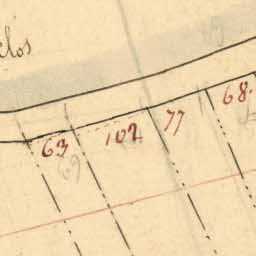 clos
63 102 77 68.
69